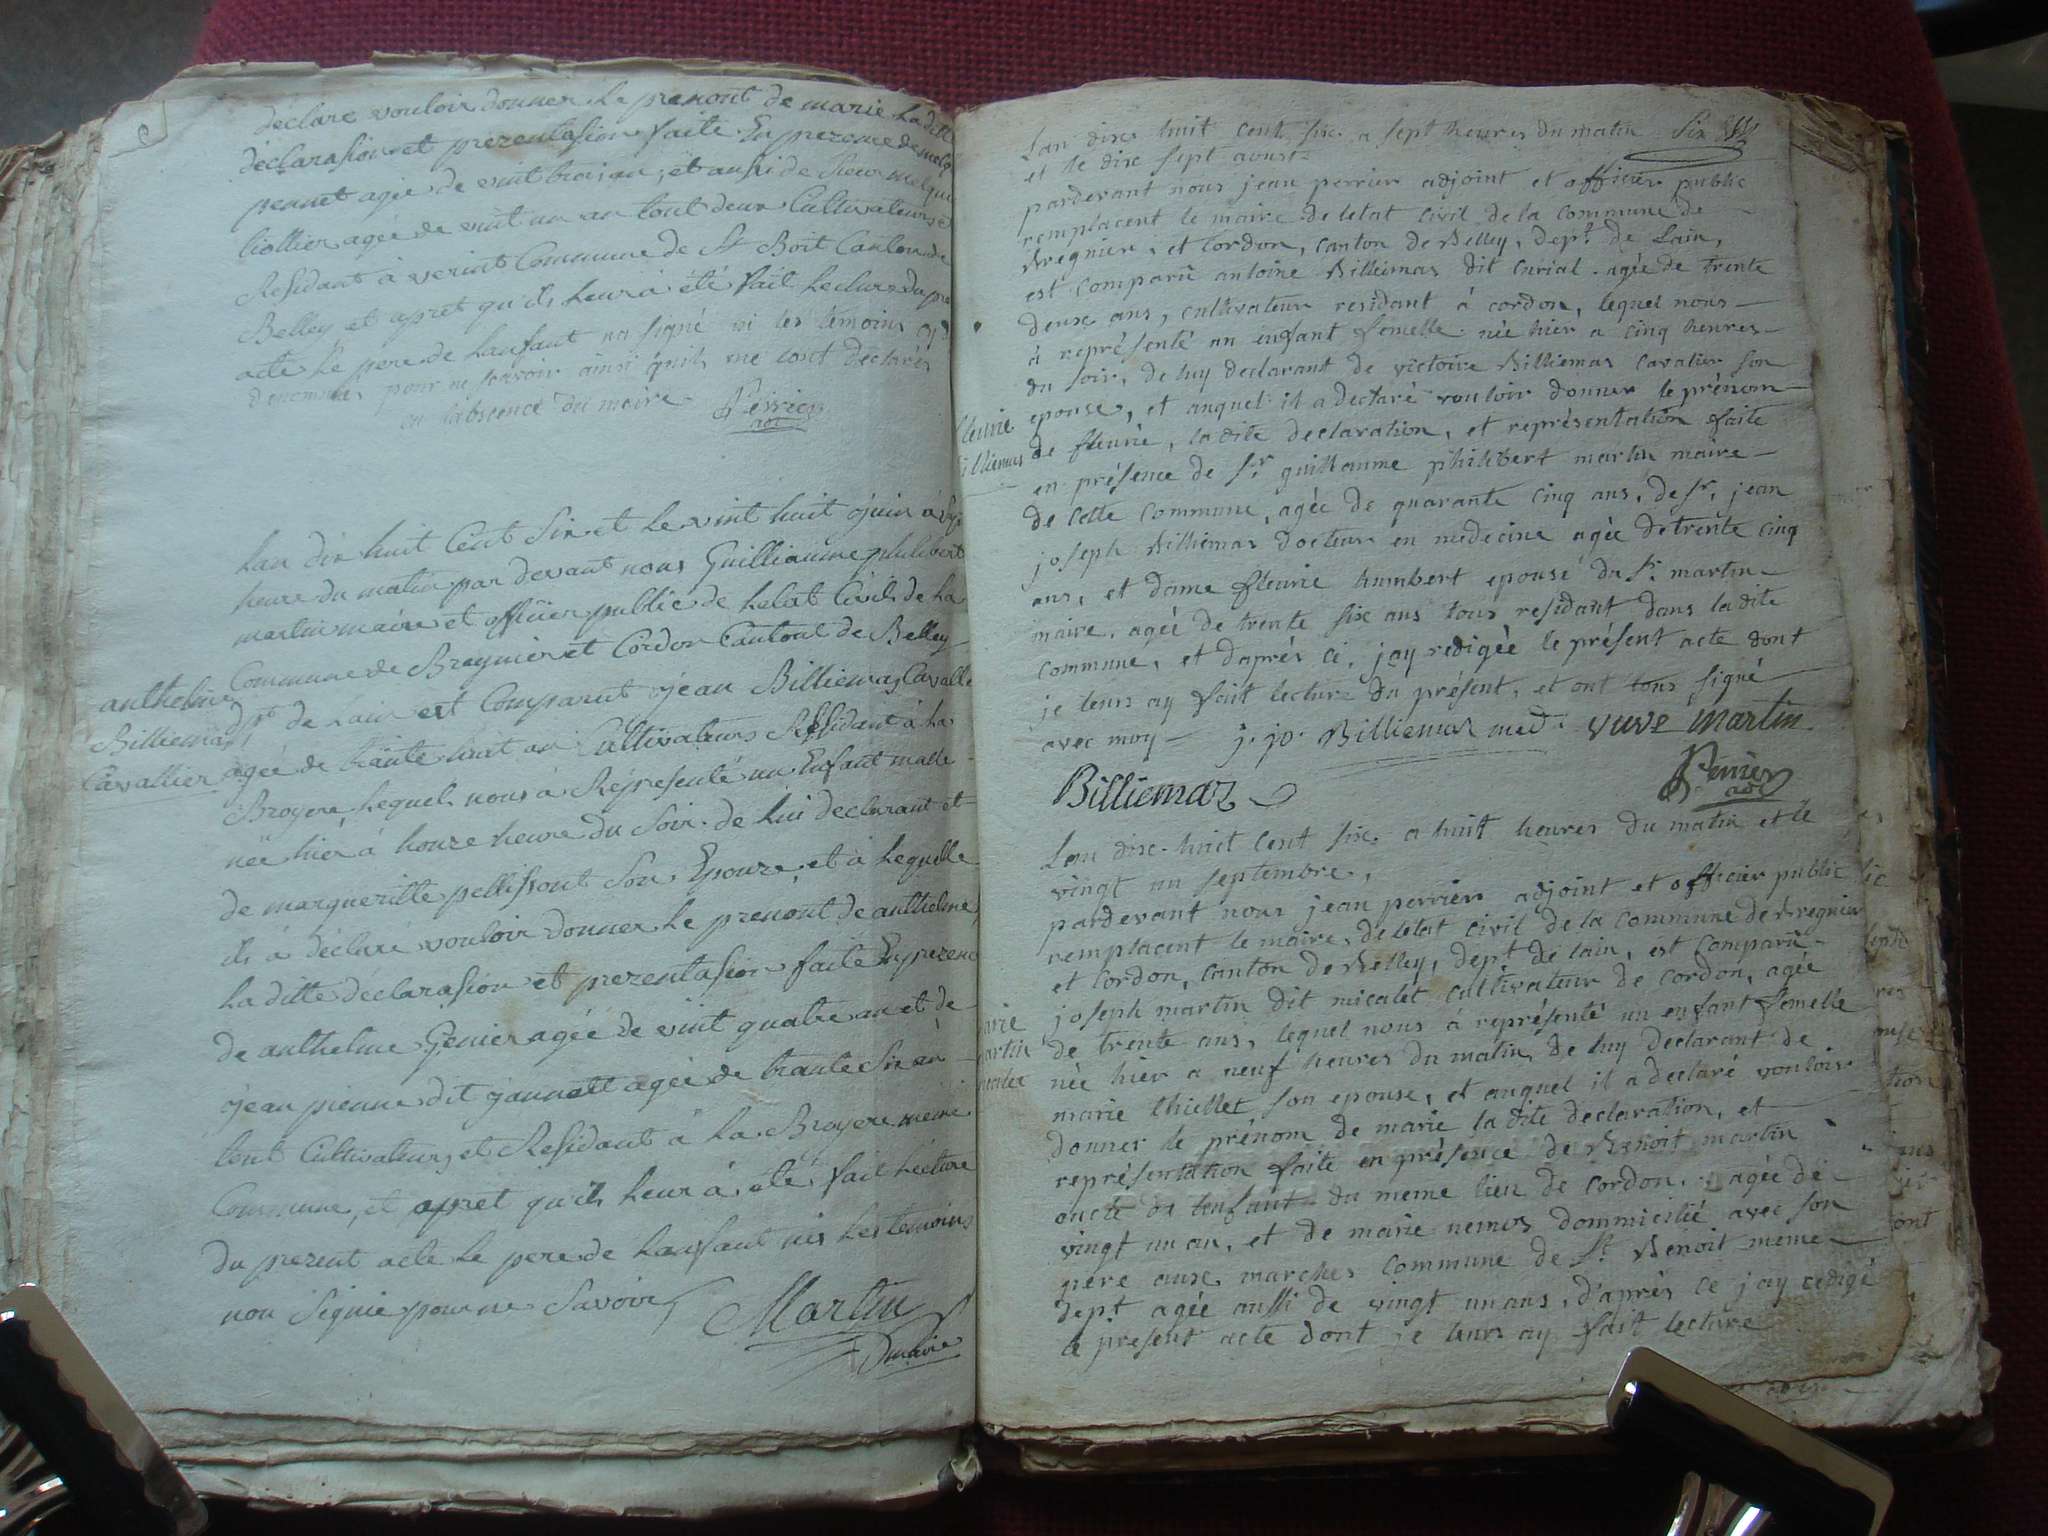 déclare vouloir donner le prenont de marie la ditte
déclarasion et prezentasion faite En prezence de
pennet agée de vint troi an, et aussi de Sieur
liollier agée de vint un an tout deux Cultivateurs
Residant à verint Commune de St Boit Canton de
Belley et apret qu'ils leur à été fait lecture du pre
acte le pere de lanfant na signé ni les temoins cy
denommés pour ne scavoir ainsi quils me lont declarés
en labscence du maire Perrier
adt
Lan dix huit Cent Six et le vint huit juin à
heure du matin par devant nous Guilliaume philibert
martin maire et officier public de letat Civil de la
Commune de Bregnier et Cordon Cantont de Belley
dpt de Lain est Comparut jean Billiemas Cavallier
agée de trante huit an Cultivateurs Résidant à la
Broyere, lequel nous à Réprésenté un Enfant malle
née hiér à honze heure du Soir de lui declarant et
de margueritte pellissont Son Epouze et à lequelle
ils à déclaré vouloir donner le prenont de anthelme,
la ditte declarasion et prezentasion faite En prezence
de anthelme Genier agée de vint quatre an et de
jean pienne dit jannett agée de trante Six an
tout Cultivateurs et Residant à la Broyere meme
Commune, et apret qu'ils leur à été fait lécture
du prezent acte le pere de lanfant nis les temoins
non Signié pour ne Savoir Martin
maire
anthelme
Billiemas
Cavallier
Lan dix huit cent six a sept heures du matin Six
et le dix sept aoust
pardevant nous jean perrier adjoint et officier public
remplacent le maire de letat civil de la commune de
Bregnier, et Cordon, canton de Belley, dept. de Lain,
est comparü antoine Billiemas dit curial agée de trente
deux ans, cultivateur residant à cordon, lequel nous
à représenté un enfant femelle née hier a cinq heures
du soir, de luy declarant de victoire Billiemas cavalier son
epouse, et auquel il a declaré vouloir donner le prénom
de fleurie, la dite declaration, et représentation faite
en présence de Sr. guillaume philibert martin maire
de cette commune, agée de quarante cinq ans, de Sr. jean
joseph Billiemas docteur en medecine agée de trente cinq
ans, et dame fleurie humbert epouse du Sr. martin
maire, agée de trente six ans tous residant dans la dite
commune, et d'aprés ce, jay redigée le présent acte dont
je leurs ay fait lecture du présent, et ont tous signé
avec moy j. jo. Billiemas med. martin
Billiemaz Perrier
adt
fleurie
illiemas
Lan dix-huit cent six a huit heures du matin et le
vingt un septembre,
pardevant nous jean perrier adjoint et officier public
remplacent le maire, de letat civil de la commune de Bregnier
et Cordon, canton de Belley, dept de lain, est comparü
joseph martin dit micalet cultivateur de cordon, agée
de trente ans, lequel nous à représenté un enfant femelle
née hier a neuf heures du matin, de luy declarant de
marie thiellet son epouse, et auquel il a declaré vouloir
donner le prénom de marie la dite declaration, et
représentation faite en présence de Benoit martin
oncle de lenfant du meme lieu de cordon, agée de
vingt un an, et de marie nemos dommicilié avec son
pere aux marches commune de St. Benoit meme
dept agée aussi de vingt un ans, d'aprés ce jay redigé
le présent acte dont je leurs ay fait lecture
arie
artin